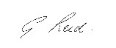 G Reid.